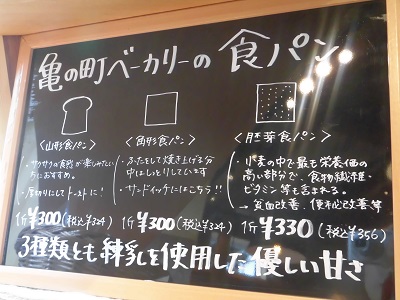 亀の町ベーカリーの食パン
〈山形食パン〉
・サクサクの食感が楽しみたい方におすすめ。
・厚切りにしてトーストに!
1斤¥300(税込¥324)
〈角形食パン〉
・ふたをして焼き上げる分
中はしっとりしています
・サンドイッチにはこちら!!
1斤¥300(税込¥324)
〈胚芽食パン〉
・小麦の中で最も栄養価の
高い部分で、食物繊維・
ビタミン等も含まれる。
→貧血改善、便秘改善等
1斤¥330(税込¥356)
3種類とも練乳を使用した優しい甘さ